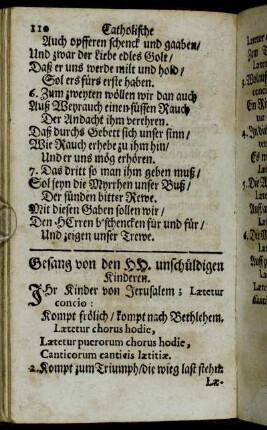 110 Catholische
Auch opfferen schenck und gaaben/
Und zwar der Liebe edles Golt/
Daß er uns werde milt und hold/
Sol ers fürs erste haben.
6. Zum zweyten wöllen wir dan auch
Auß Weyrauch einen süssen Rauch
Der Andacht ihm verehren.
Daß durchs Gebett sich unser sinn/
Wie Rauch erhebe zu ihm hin/
Und er uns mög erhören.
7. Das dritt so man ihm geben muß/
Sol seyn die Myrrhen unser Buß/
Der sünden bitter Rewe.
Mit diesen Gaben sollen wir/
Den HErren b'schencken für und für/
Und zeigen unser Trewe.
Gesang von den HH. unschüldigen
Kinderen.
IHr Kinder von Jerusalem; Lætetur
concio:
Kompt frölich/ kompt nach Bethlehem.
Lætetur chorus hodie,
Lætetur puerorum chorus hodie,
Canticorum canticis lætitiæ.
2. Kompt zum Triumph/ die wieg last stehn
Læ-